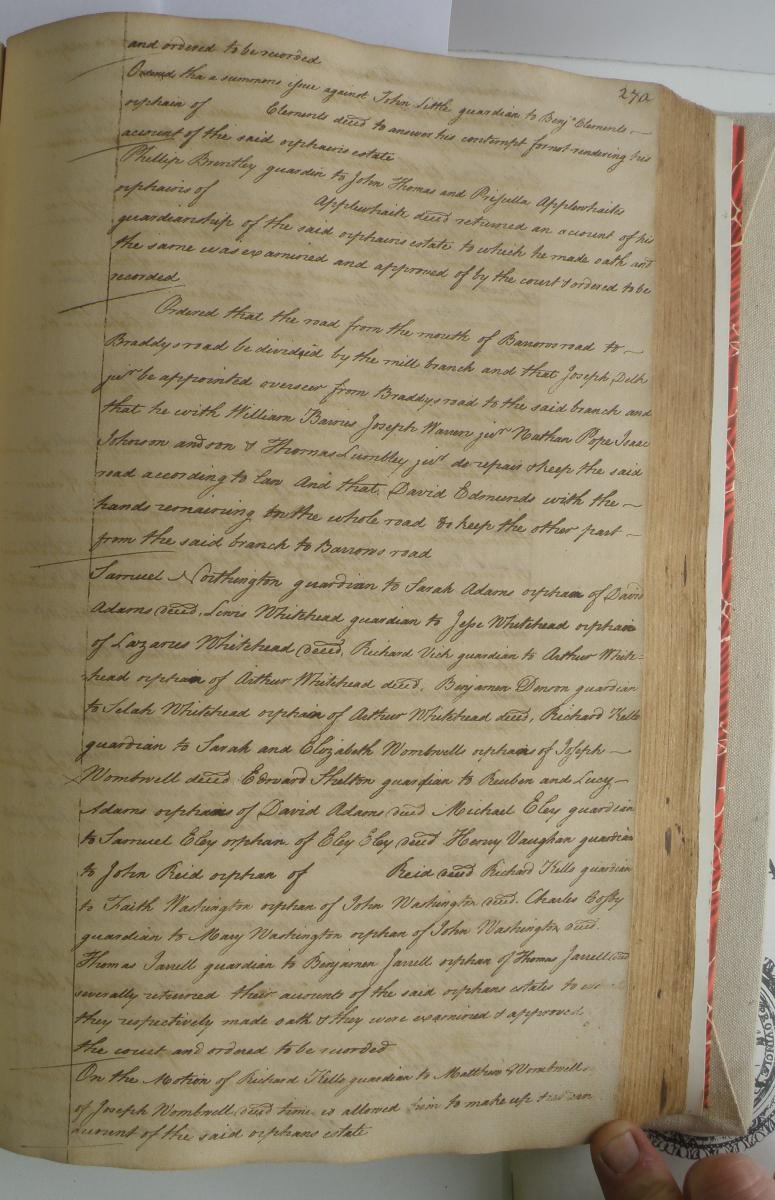 270
and ordered to be recorded
Ordered tha a summons issue against John Little guardian to Benjn Clements
orphain of Clements decd to answer his contempt for not rendering his
account of the said orphains estate
Phillip Brantley guardin to John Thomas and Prisulla Applewhaites
orphains of Applewhaite decd returned an account of his
guardianship of the said orphains estate to which he made oath and
the same was examined and approved of by the court & ordered to be
recorded
Ordered that the road from the mouth of Barrows road to
Braddys road be divided by the mill branch and that Joseph Delk
junr be appointed overseer from Braddys road to the said branch and
that he with William Barnes Joseph Warren junr Nathan Pope Isaac
Johnson and son & Thomas Lumbley junr do repair & keep the said
road according to Law And that David Edmunds with the
hands remaining on the whole road do keep the other part
from the said branch to Barrows road
Samuel Northington guardian to Sarah Adams orphan of David
Adams decd, Lewis Whitehead guardian to Jesse Whitehead orphain
of Lazarus Whitehead decd, Richard Vick guardian to Arthur White-
head orphain of Arthur Whitehead decd, Benjamen guardian
to Selah Whitehead orphain of Arthur Whitehead decd, Richard Kello
guardian to Sarah and Elizabeth Wombwells orphains of Joseph
Wombwell decd Edward Shelton guardian to Reuben and Lucy
Adams orphains of David Adams decd Michael Eley guardian
to Samuel Eley orphan of Eley Eley decd Henry Vaughan guardian
to John Reid orphan of Reid decd Richard Kello guardian
to Faith Washington orphan of John Washington decd. Charles Cosby
guardian to Mary Washington orphan of John Washington decd.
Thomas Jarrell guardian to Benjamen Jarrell orphan of Thomas Jarrell decd
severally returned their accounts of the said orphans estates to
they respectively made oath & they were examined & approved
the court and ordered to be recorded
On the Motion of Richard Kello guardian to Matthew Wombwell
of Joseph Wombwell decd time is allowed him to make up
account of the said orphans estate